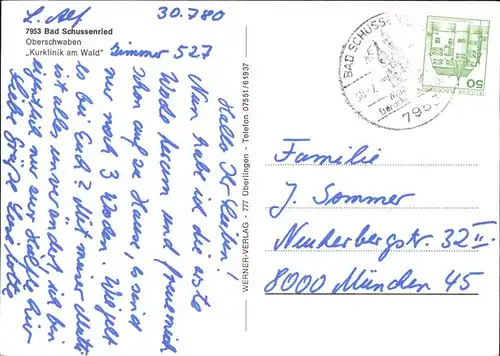 L. Alf
30.7.80
7953 Bad Schussenried
Oberschwaben
„Kurklinik am Wald"
Zimmer 527
Hallo Ihr Lieben!
Nun habe ich die erste
Woche herum und freue mich
schon auf zu Hause, es sind
nur noch 3 Wochen. Wie geht
es bei Euch? Mit meiner Mutti
ist alles unverändert, ich bin
eigentlich nur zur Hälfte hier
Liebe Grüße Lieselotte
WERNER-VERLAG - 777 Überlingen - Telefon 07551/61937
BAD SCHUSSENRIED
7953
50
Familie
J. Sommer
Neuherbergstr. 32 II
8000 München 45